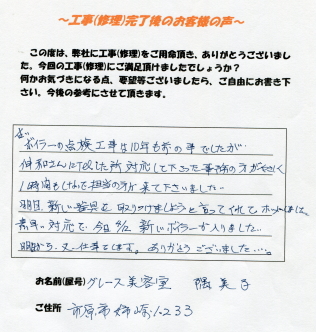 ～工事(修理)完了後のお客様の声～
この度は、弊社に工事(修理)をご用命頂き、ありがとうございまし
た。今回の工事(修理)にご満足頂けましたでしょうか？
何かお気づきになる点、要望等ございましたら、ご自由にお書き下
さい。今後の参考にさせて頂きます。
ボイラーの点検工事は10年も前の事でしたが
さんにTELした所対応して下さった事務の方がやさしく
1時間もしないで担当の方が来て下さいました
明日、新しい器具を取りつけましょうと言ってくれてホッとしました
素早い対応で今日 新しいボイラーが入りました
明日から又仕事できます。ありがとうございました…。
お名前(屋号) グレース美容室 美子
ご住所 市原市姉崎1233